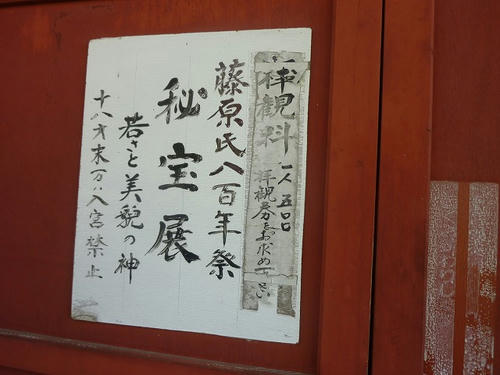 拝観料 一人 五〇〇
拝観券をお求め下さい
藤原氏八百年祭
秘宝展
若さと美貌の神
十八才末万ハ入宮禁止